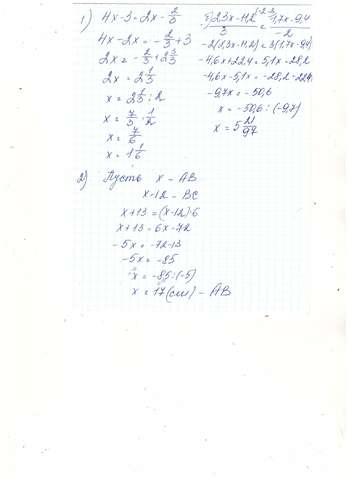 1) 4x-3=2x-2/3
4x-2x=-2/3+3
2x=-2/3+2 3/3
2x=2 1/3
x=2 1/3:2
x=7/3·1/2
x=7/6
x=1 1/6
2,3x-11,2/3=1,7x-9,4/-2
-2(2,3x-11,2)=3(1,7x-9,4)
-4,6x+22,4=5,1x-28,2
-4,6x-5,1x=-28,2-22,4
-9,7x=-50,6
x=-50,6:(-9,7)
x=5 21/97
2) Пусть x-AB
x-12-BC
x+13=(x-12)·6
x+13=6x-72
-5x=-72-13
-5x=-85
x=-85:(-5)
x=17(см)-AB